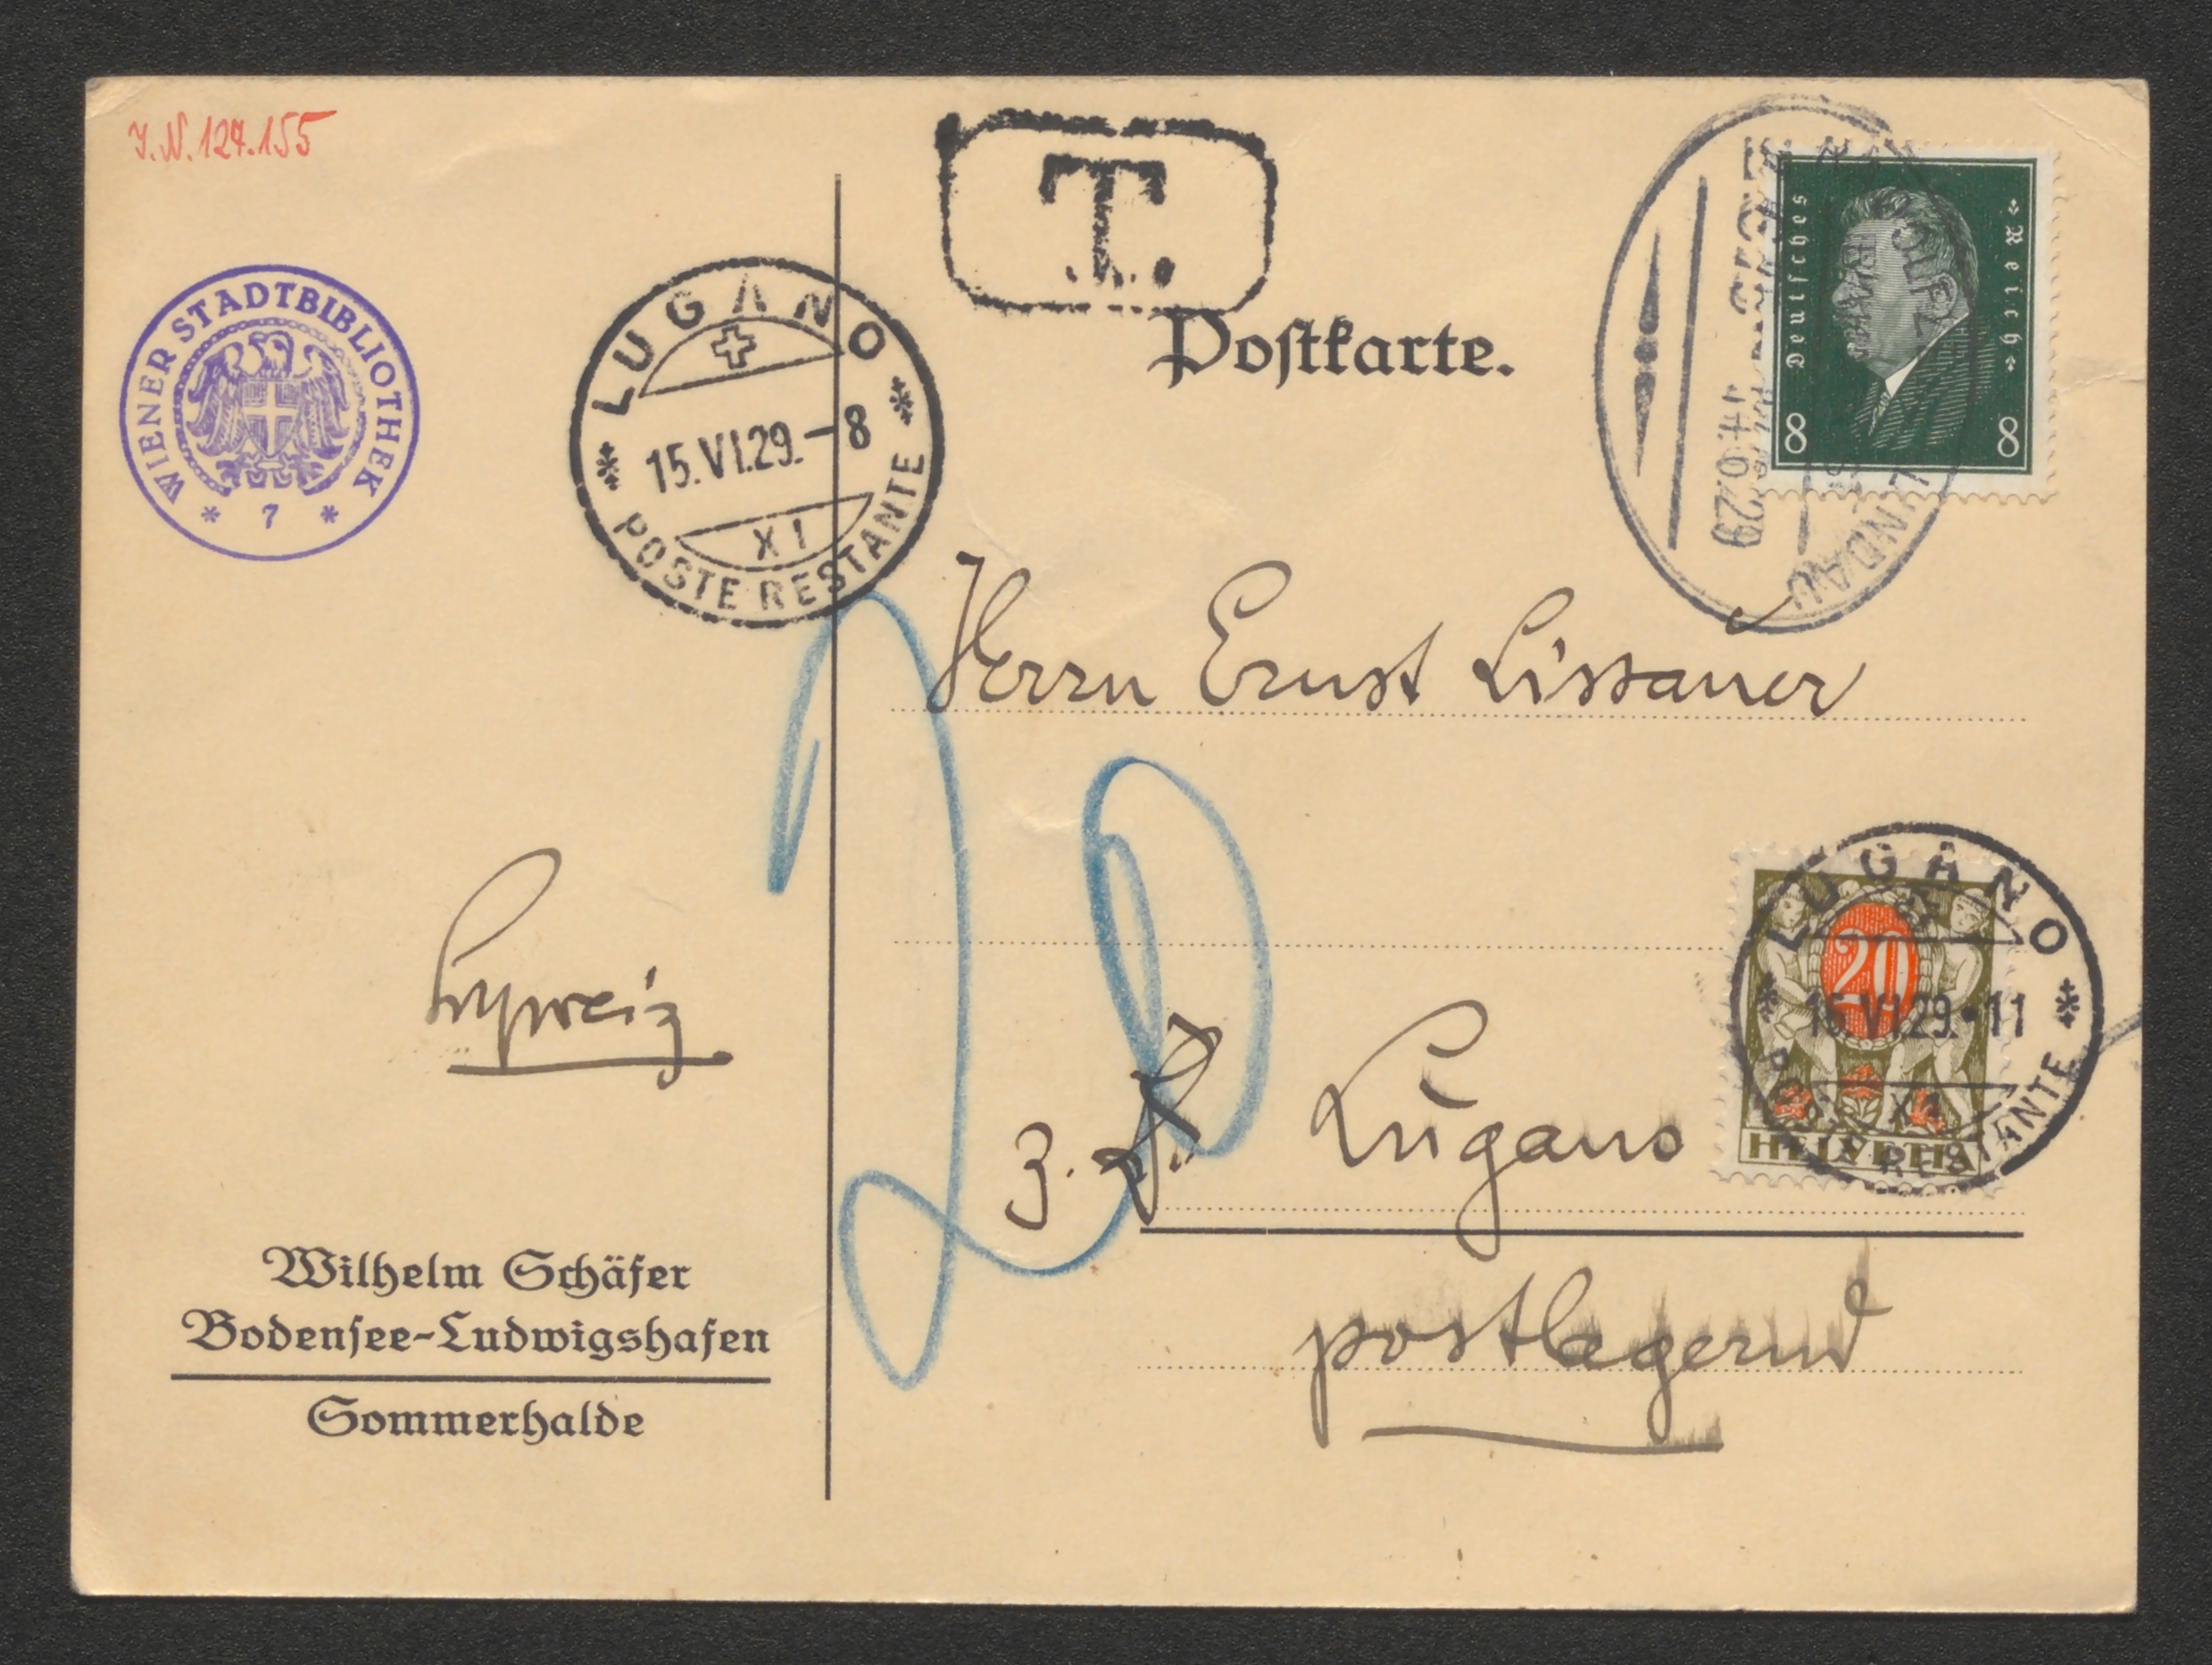 J.N. 127.155
WIENER STADTBIBLIOTHEK
* 7 *
LUGANO
15.VI.29.-8
XI
POSTE RESTANTE
T.
Postkarte.
Deutsches Reich
8 8
LINDAU
Herrn Ernst Lissauer
20
Schweiz
z. Z. Lugano
postlagernd
20
HELVETIA
LUGANO
15.VI.29.-11
XI
POSTE RESTANTE
Wilhelm Schäfer
Bodensee-Ludwigshafen
Sommerhalde